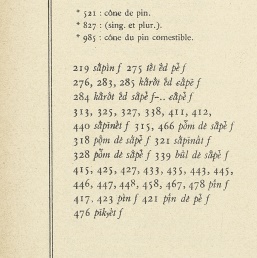 * 521 : cône de pin.
* 827 : (sing. et plur.).
* 985 : cône du pin comestible.
219 sằpìn f 275 tèi ĕd pè f
276, 283, 285 kắrŏt ĕd cắpĕ f
284 kắrŏt ĕd sắpĕ f-.. cắpĕ f
313, 325, 327, 338, 411, 412,
440 sắpinèt f 315, 466 pŏ̀m dè sắpĕ f
318 pọ̀m dè sắpĕ f 321 sắpinàt f
328 pŏ̀m dè sắpĕ f 339 bùl dè sắpĕ f
415, 425, 427, 433, 435, 443, 445,
446, 447, 448, 458, 467, 478 pin f
417. 423 pìn f 421 pin de pĕ f
476 pikyèt f